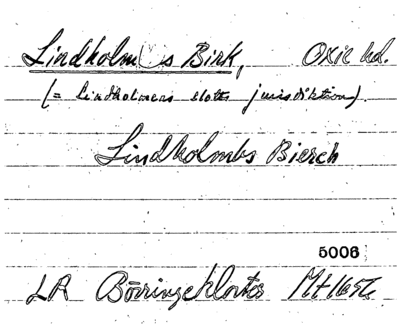 Lindholms Birk, Oxie hd.
(= Lindholmens slotts jurisdiktion).
Lindholmbs Bierck
5006
LA Börringekloster Mt